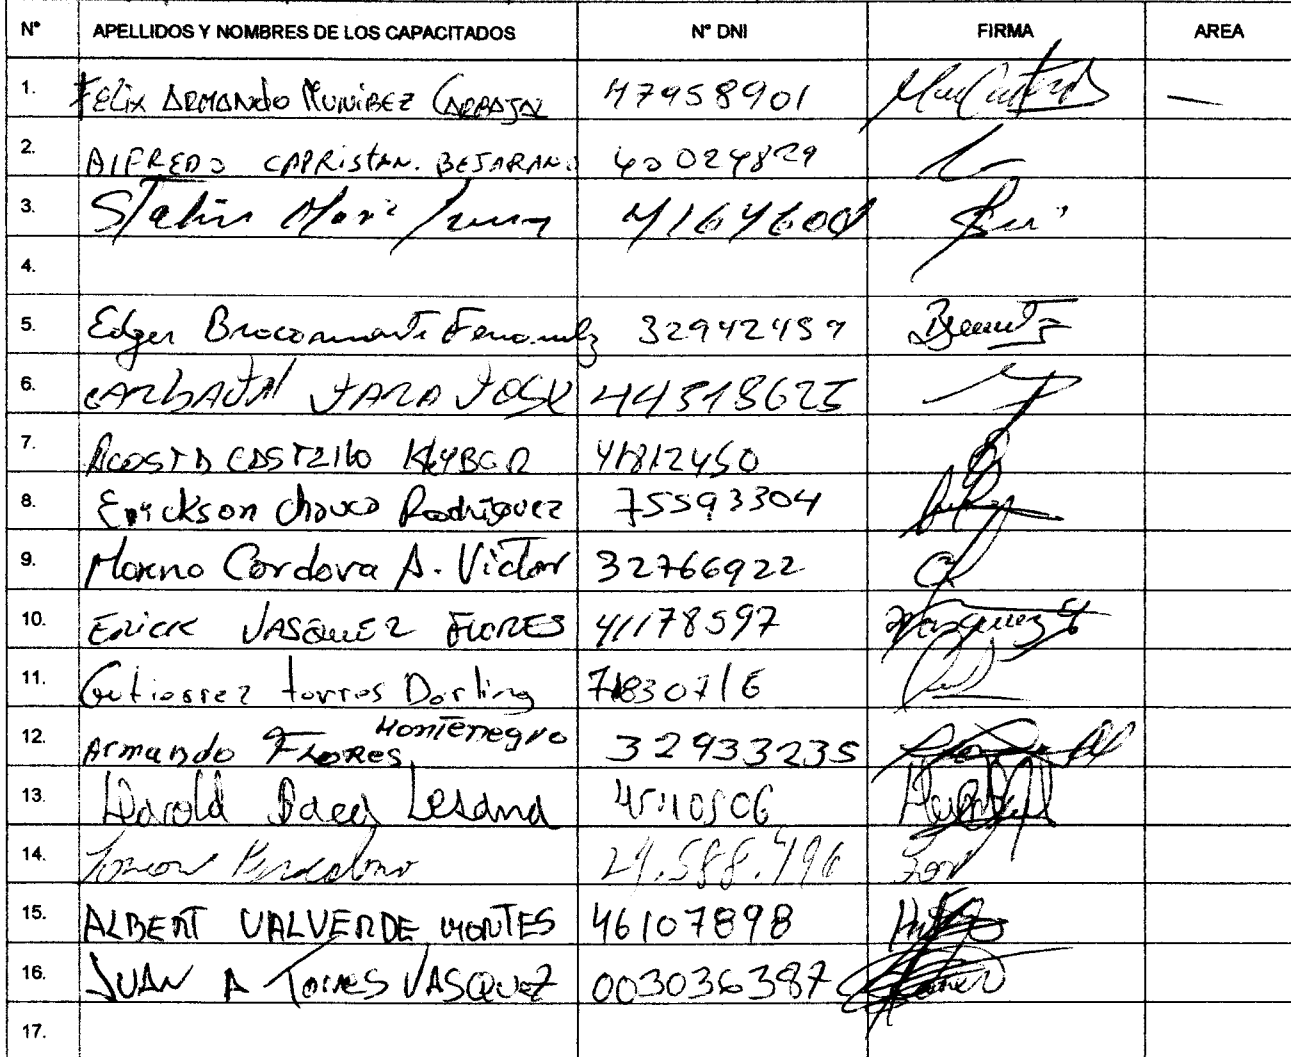 N° APELLIDOS Y NOMBRES DE LOS CAPACITADOS N° DNI FIRMA AREA
1. FELIX ARMANDO MUNIBEZ CARBAJAL 47958901 —
2. AlFREDO CAPRISTAN. BEJARANO 40024829
3. Stalin 41646001
4.
5. Edger Broncano 32942459
6. CARBAJAl JARA JOSE 44318625
7. ACOSTA CASTRIllO KleYBER 41812450
8. Erickson Chauca Rodriguez 75593304
9. Moreno Cordova A. Victor 32766922
10. ERICK VASQUEZ FLORES 41178597 Vasquez
11. Gutierrez torres Darling 71830716
12. Armando FLORES Montenegro 32933235
13. Harold Baca Lesama 45110506
14. 29.588.796
15. ALBERT VALVERDE MONTES 46107898
16. JUAN A Torres VASQUEZ 003036387
17.